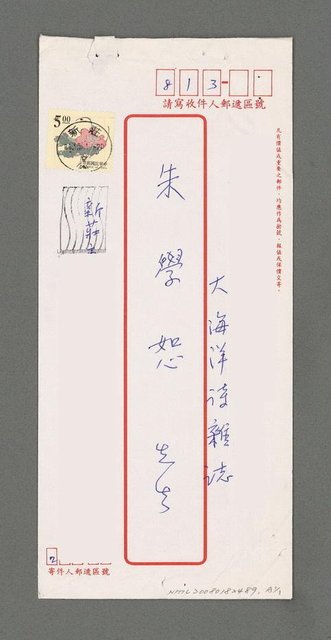 813-
請寫收件人郵遞區號
凡有價值或重要之郵件，均應作為掛號、報值或保價交寄。
5.00
新莊
大海洋詩雜誌
朱學恕 先生
寄件人郵遞區號
2
NMTL20080182489